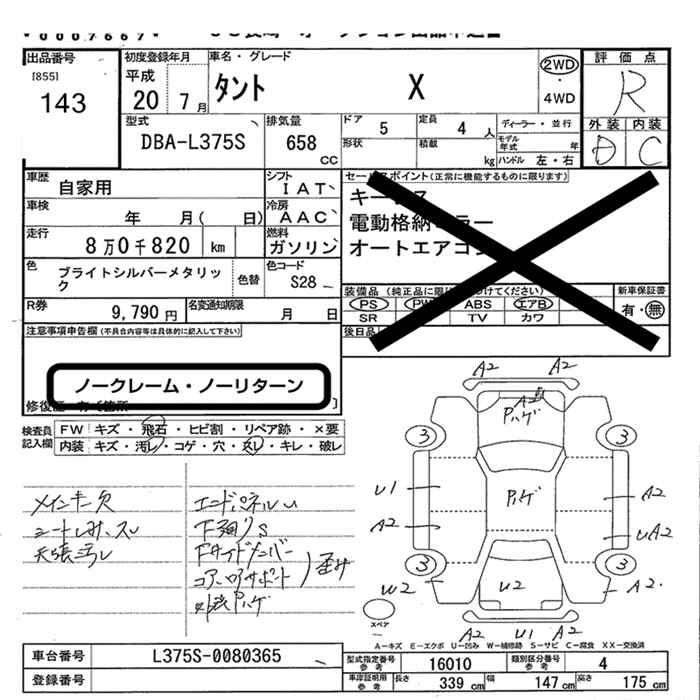 出品番号
[855]
143
初度登録年月
平成
20 7 月
車名・グレード
タント X
2WD
・
4WD
評価点
R
外装 内装
D C
型式
DBA-L375S
排気量
658
CC
ドア
5
定員
4 人
形状
積載
kg
ディーラー・並行
モデル年式 年
ハンドル 左・右
車歴
自家用
シフト
IAT
車検
年 月( 日)
冷房
AAC
走行
8万0千820 km
燃料
ガソリン
色
ブライトシルバーメタリック
色替
色コード
S28
R券
9,790 円
名変通知期限
月 日
セールスポイント(正常に機能するものに限ります)
キーレス
電動格納ミラー
オートエアコン
装備品 (純正品に限り
けてください)
PS PW ABS エアB
SR TV カワ
新車保証書
有・無
後日品
注意事項申告欄(不具合内容等は具体的に記入して下さい)
ノークレーム・ノーリターン
修復歴
検査員
記入欄
FW キズ・飛石・ヒビ割・リペア跡・×要
内装 キズ・汚レ・コゲ・穴・スレ・キレ・破レ
メインキー欠
シートしみ、スレ
天張汚レ
エンドパネルU
下廻りS
Fサイドメンバー
コアロアサポート
歪み
外装Pハゲ
A2 A2
A2
Pハゲ
3 3
U1
A2
Pハゲ
A2
UA2
3 3
W2
U2
A2
スペア
A2 U1 A2
A-キズ E-エクボ U-凹み W-補修跡 S-サビ C-腐食 XX-交換済
車台番号
L375S-0080365
登録番号
型式指定番号
参考
16010
類別区分番号
参考
4
車庫証明用
参考
長さ 339 cm
幅 147 cm
高さ 175 cm